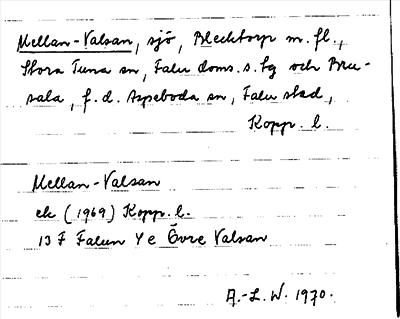 Mellan-Valsan, sjö, Blecktorp m.fl.,
Stora Tuna sn, Falu doms. s. tg och Bru-
sala, f.d. Aspeboda sn, Falu stad,
Kopp. l.
Mellan-Valsan
ek (1969) Kopp. l.
13 F Falun Y e Övre Valsan
A.-L. W. 1970.